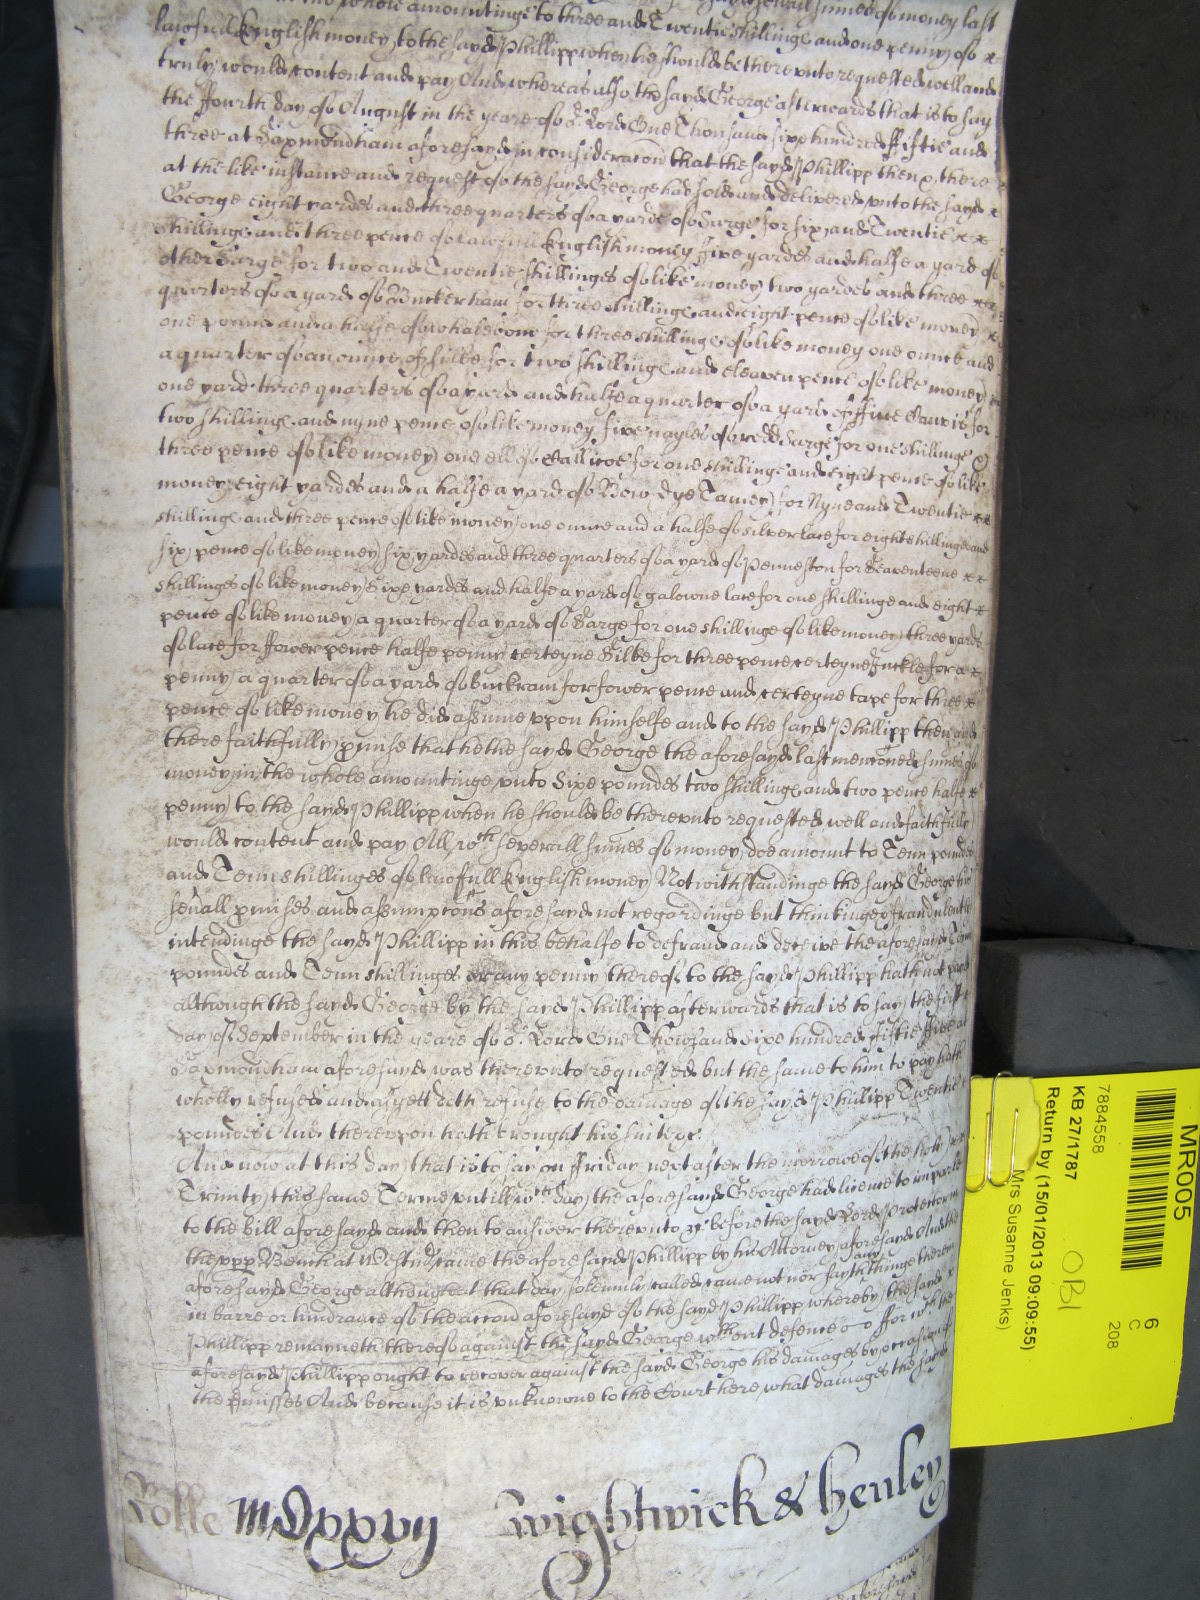 in the whole amountinge to three and Twentie shillinge and one penny of
lawfull English money, to the sayd Phillipp when he should be thereunto requested well and
truly would content and pay And whereas also the sayd George afterwards that is to say
the ffourth day of August in the yeare of or Lord One Thousand six hundred ffiftie and
three at Saxmondham aforesayd in consideracon that the sayd Phillipp then & there
at the like instance and request of the sayd George had sold and delivered unto the sayd
George eight yardes and three quarters of a yarde of Sarge for six and Twentie
shillinge and three pence of lawfull English money ffive yardes and halfe a yard of
other Sarge for two and Twentie shillinges of like money two yardes and three
quarters of a yard of Buckerham for three shillinge and eight pence of like money
one pound and a halfe of whalebone for three shillinge of like money one ounce and
a quarter of an ounce of silke for two shillinge and eleaven pence of like money
one yard three quarters of a yard and halfe a quarter of a yard of ffine Canvis for
two shillinge and nyne pence of like money five nayles of redd Sarge for one shillinge
three pence of like money one ell of Callicoe for one shillinge and eight pence of like
money eight yardes and a halfe a yard of Bow dye Tamey for Nyne and Twentie
shillinge and three pence of like money one ounce and a halfe of silver lace for eight shillinge and
six pence of like money six yardes and three quarters of a yard of Penneston for Seaventeene
shillinges of like money Sixe yardes and halfe a yard of galowne lace for one shillinge and eight
pence of like money a quarter of a yard of Sarge for one shillinge of like money three yards
of lace for ffower pence halfe penny certeyne Silke for three pence certeyne Inckle for a
penny a quarter of a yard of buckram for fower pence and certeyne tape for three
pence of like money he did assume uppon himselfe and to the sayd Phillipp then and
there faithfully pmise that he the sayd George the aforesayd last menconed sumes of
money in the whole amountinge unto Sixe poundes two shillinge and two pence halfe
penny to the sayd Phillipp when he should be thereunto requested well and faithfully
would content and pay All wch severall sumes of money doe amount to Tenn poundes
and Tenn shillinges of lawfull English money Notwithstandinge the sayd George his
sevall pmises and assumptons aforesayd not regardinge but thinkinge & fraudulently
intendinge the sayd Phillipp in this behalfe to defraud and deceive the aforesayd Tenn
poundes and Tenn shillinges or any penny thereof to the sayd Phillipp hath not payd
although the sayd George by the sayd Phillipp afterwards that is to say the first
day of September in the yeare of or Lord One Thowsand Sixe hundred ffiftie ffive at
Saxmondham aforesayd was thereunto requested but the same to him to pay hath
wholly refused and as yett doth refuse to the damage of the sayd Phillipp Twentie
poundes And thereupon hath brought his suite &c
And now at this day that is to say on ffriday next after the morrowe of the holy
Trinity this same Terme untill wch day the aforesayd George had licence to imparle
to the bill aforesayd and then to answer thereunto &c before the sayd Lord Protector in
the uppr Bench at Westmr came the aforesayd Phillipp by his Attorney aforesayd And the
aforesayd George although at that day solemnly called came not nor sayth any thinge therein
in barre or hindrance of the accon aforesayd of the sayd Phillipp whereby the sayd
Phillipp remayneth thereof against the sayd George wthout defence &c fforwch the
aforesayd Phillipp ought to recover against the sayd George his damages by occasion of
the pmisses And because it is unknowne to the Court here what damages the sayd
Rolle MDxxvij Wightwick & Henley
MR005
6
C
208
7884558
KB 27/1787
OBI
Return by (15/01/2013 09:09:55)
Mrs Susanne Jenks)